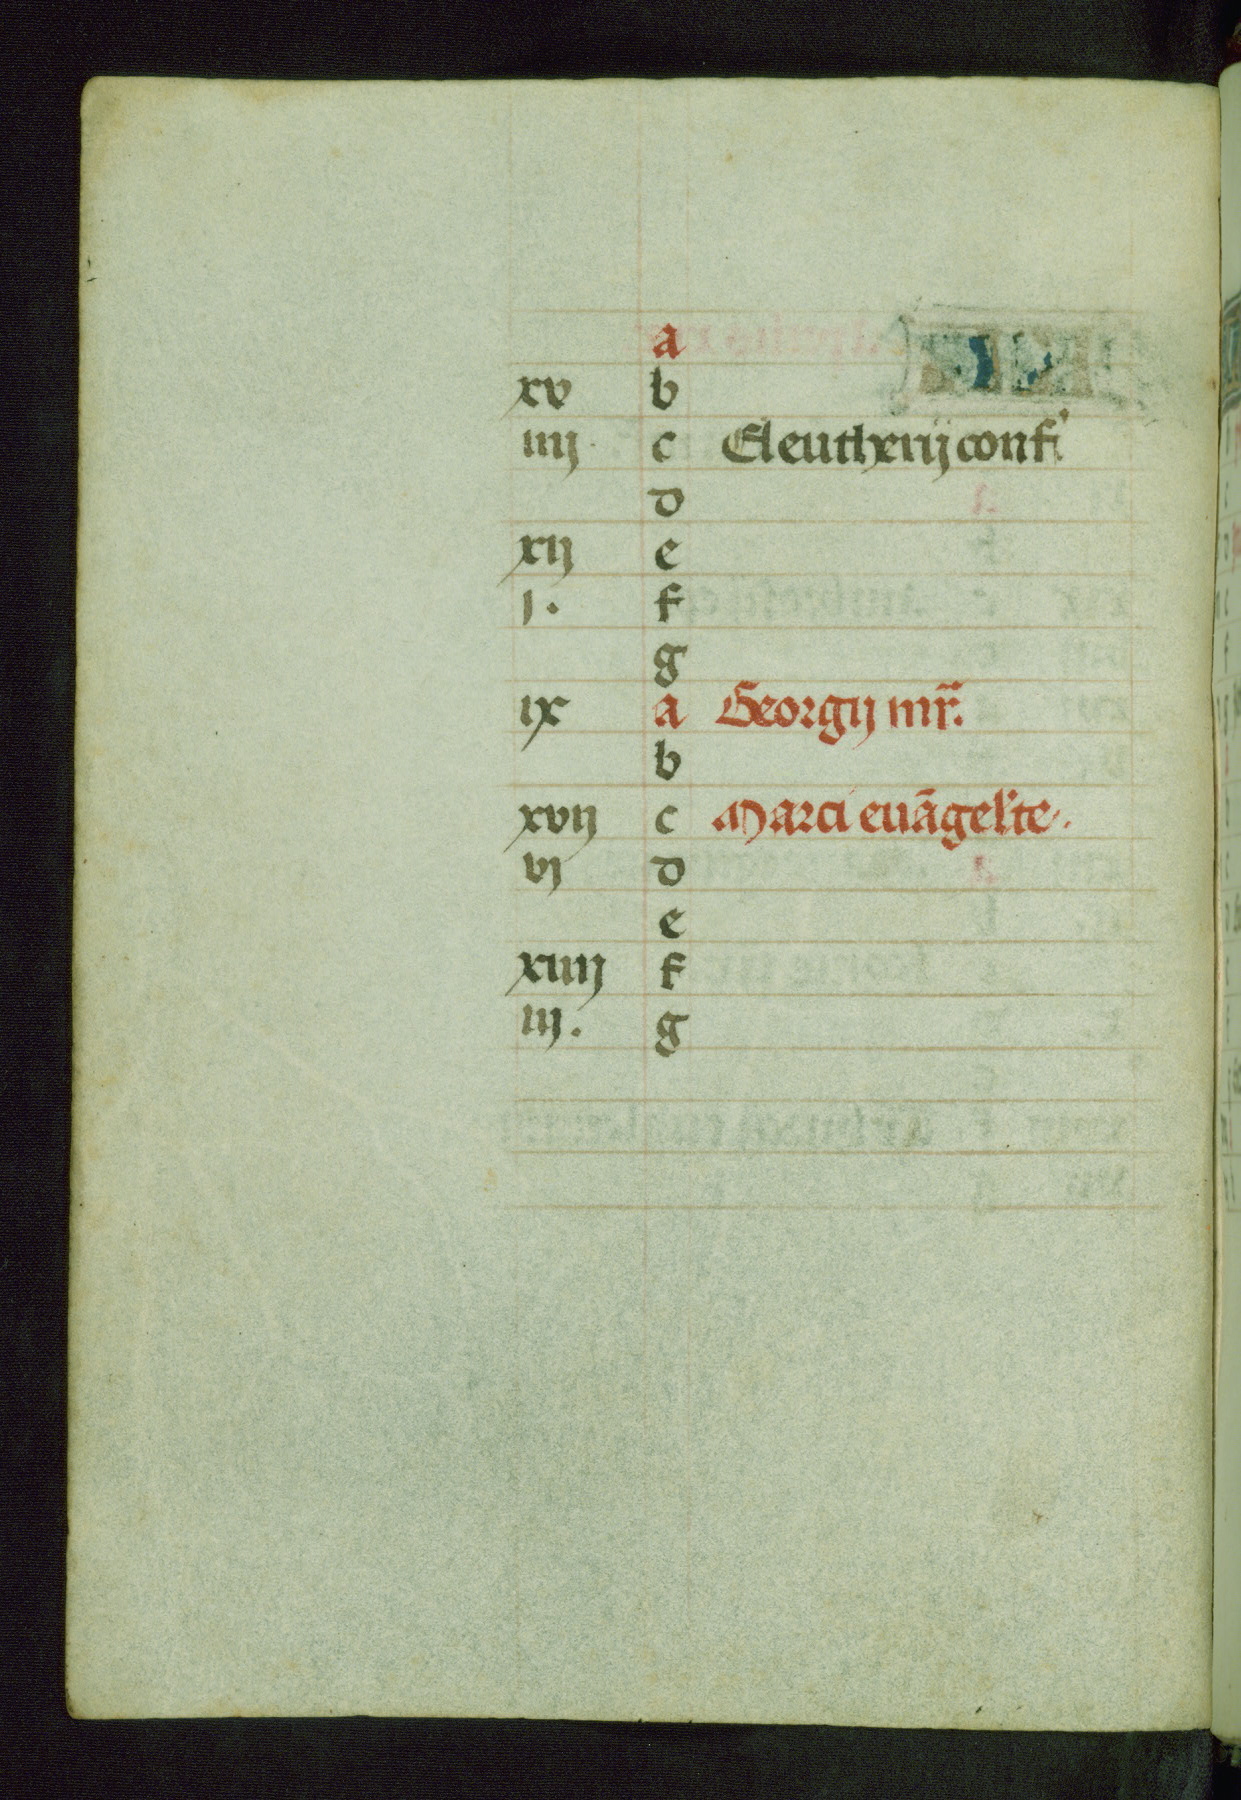 a
xv b
iiij. c Eleutherij conf'
d
xij e
j. f
g
ix a Georgij mr̃.
b
xvij c Marci euãgel'te.
vj d
e
xiiij f
iij. g